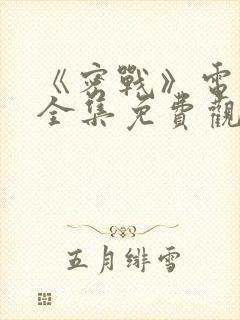 《密戰》電
全集免費觀
五月緋雪